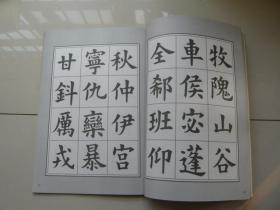 牧隗山谷
車侯宓蓬
全郗班仰
秋仲伊宫
寧仇欒暴
甘鈄厲戎